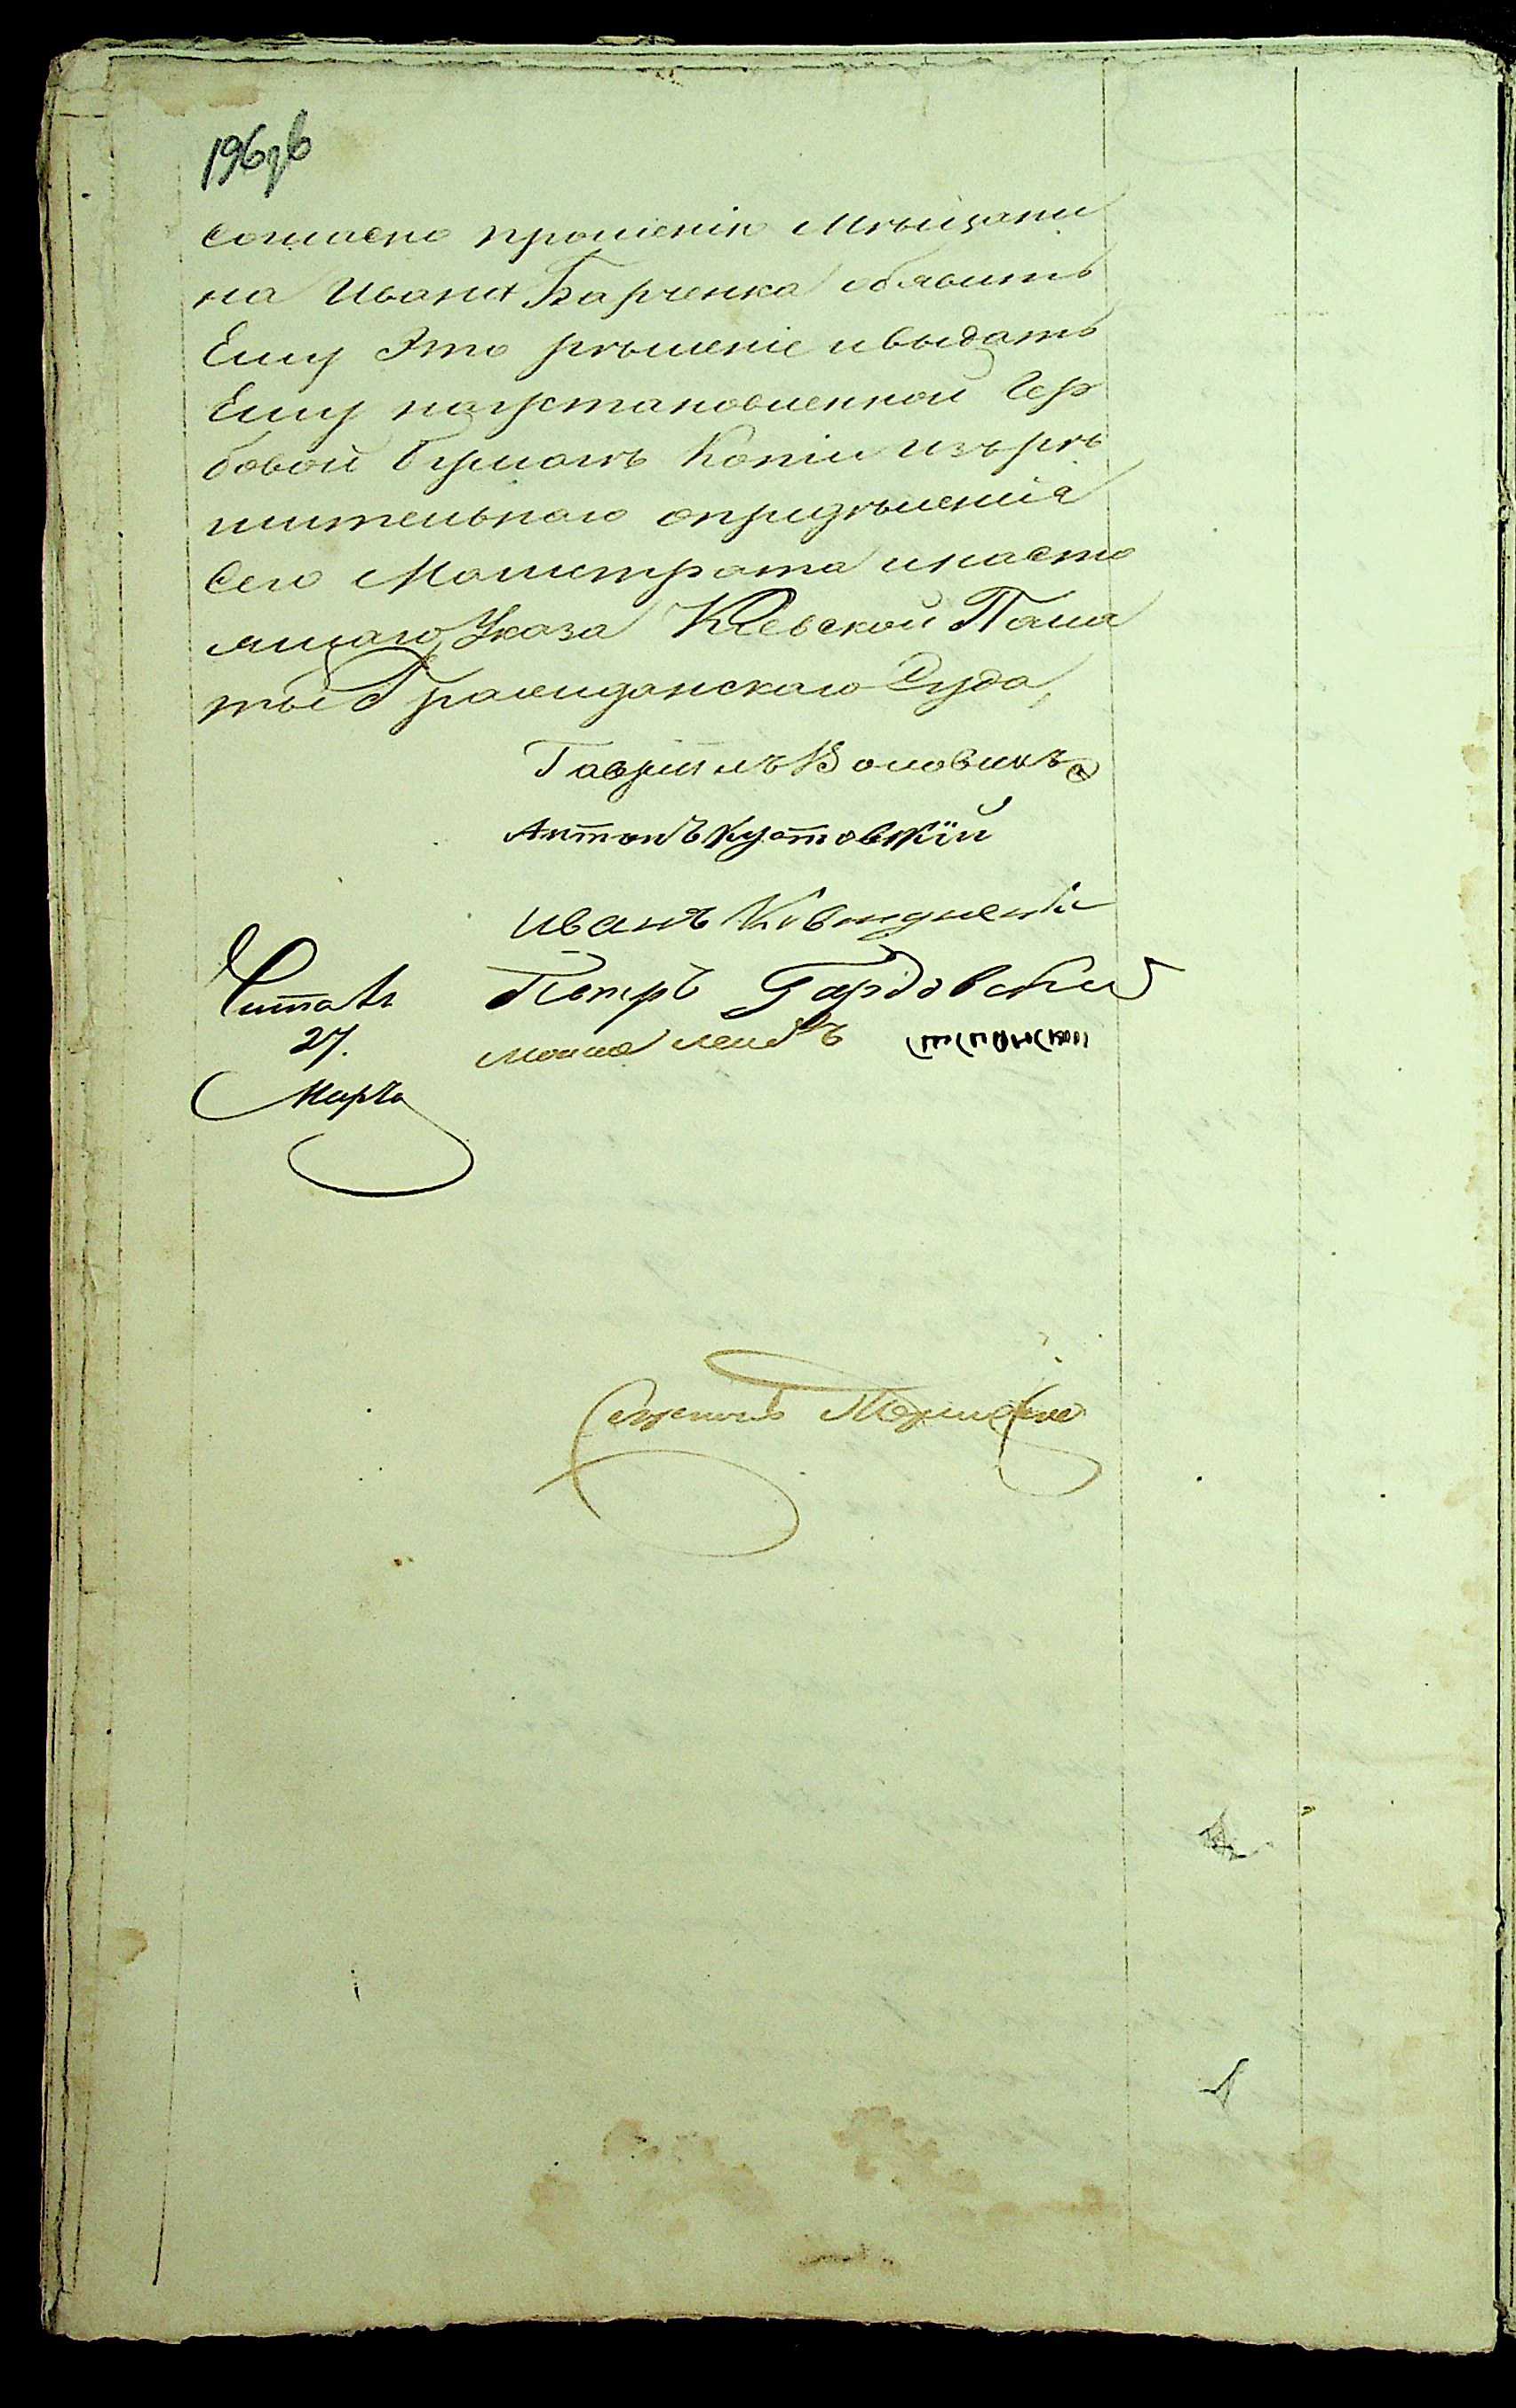 196 об
согласно прошенію Мѣщани
на Ивана Барченка объявить
Ему Это рѣшеніе и выдать
Ему на установленной Гер
бовой бумагѣ Копіи изърѣ
шительнаго опредѣленія
Сего Магистрата и насто
ящаго Указа Кіевской Пала
ты Гражданскаго Суда,
Гавріилъ Воловикъ
Антонъ Кутовскїй
Иванъ
Читалъ Петръ Гардовский
27. Мошко Лейбъ
Марта